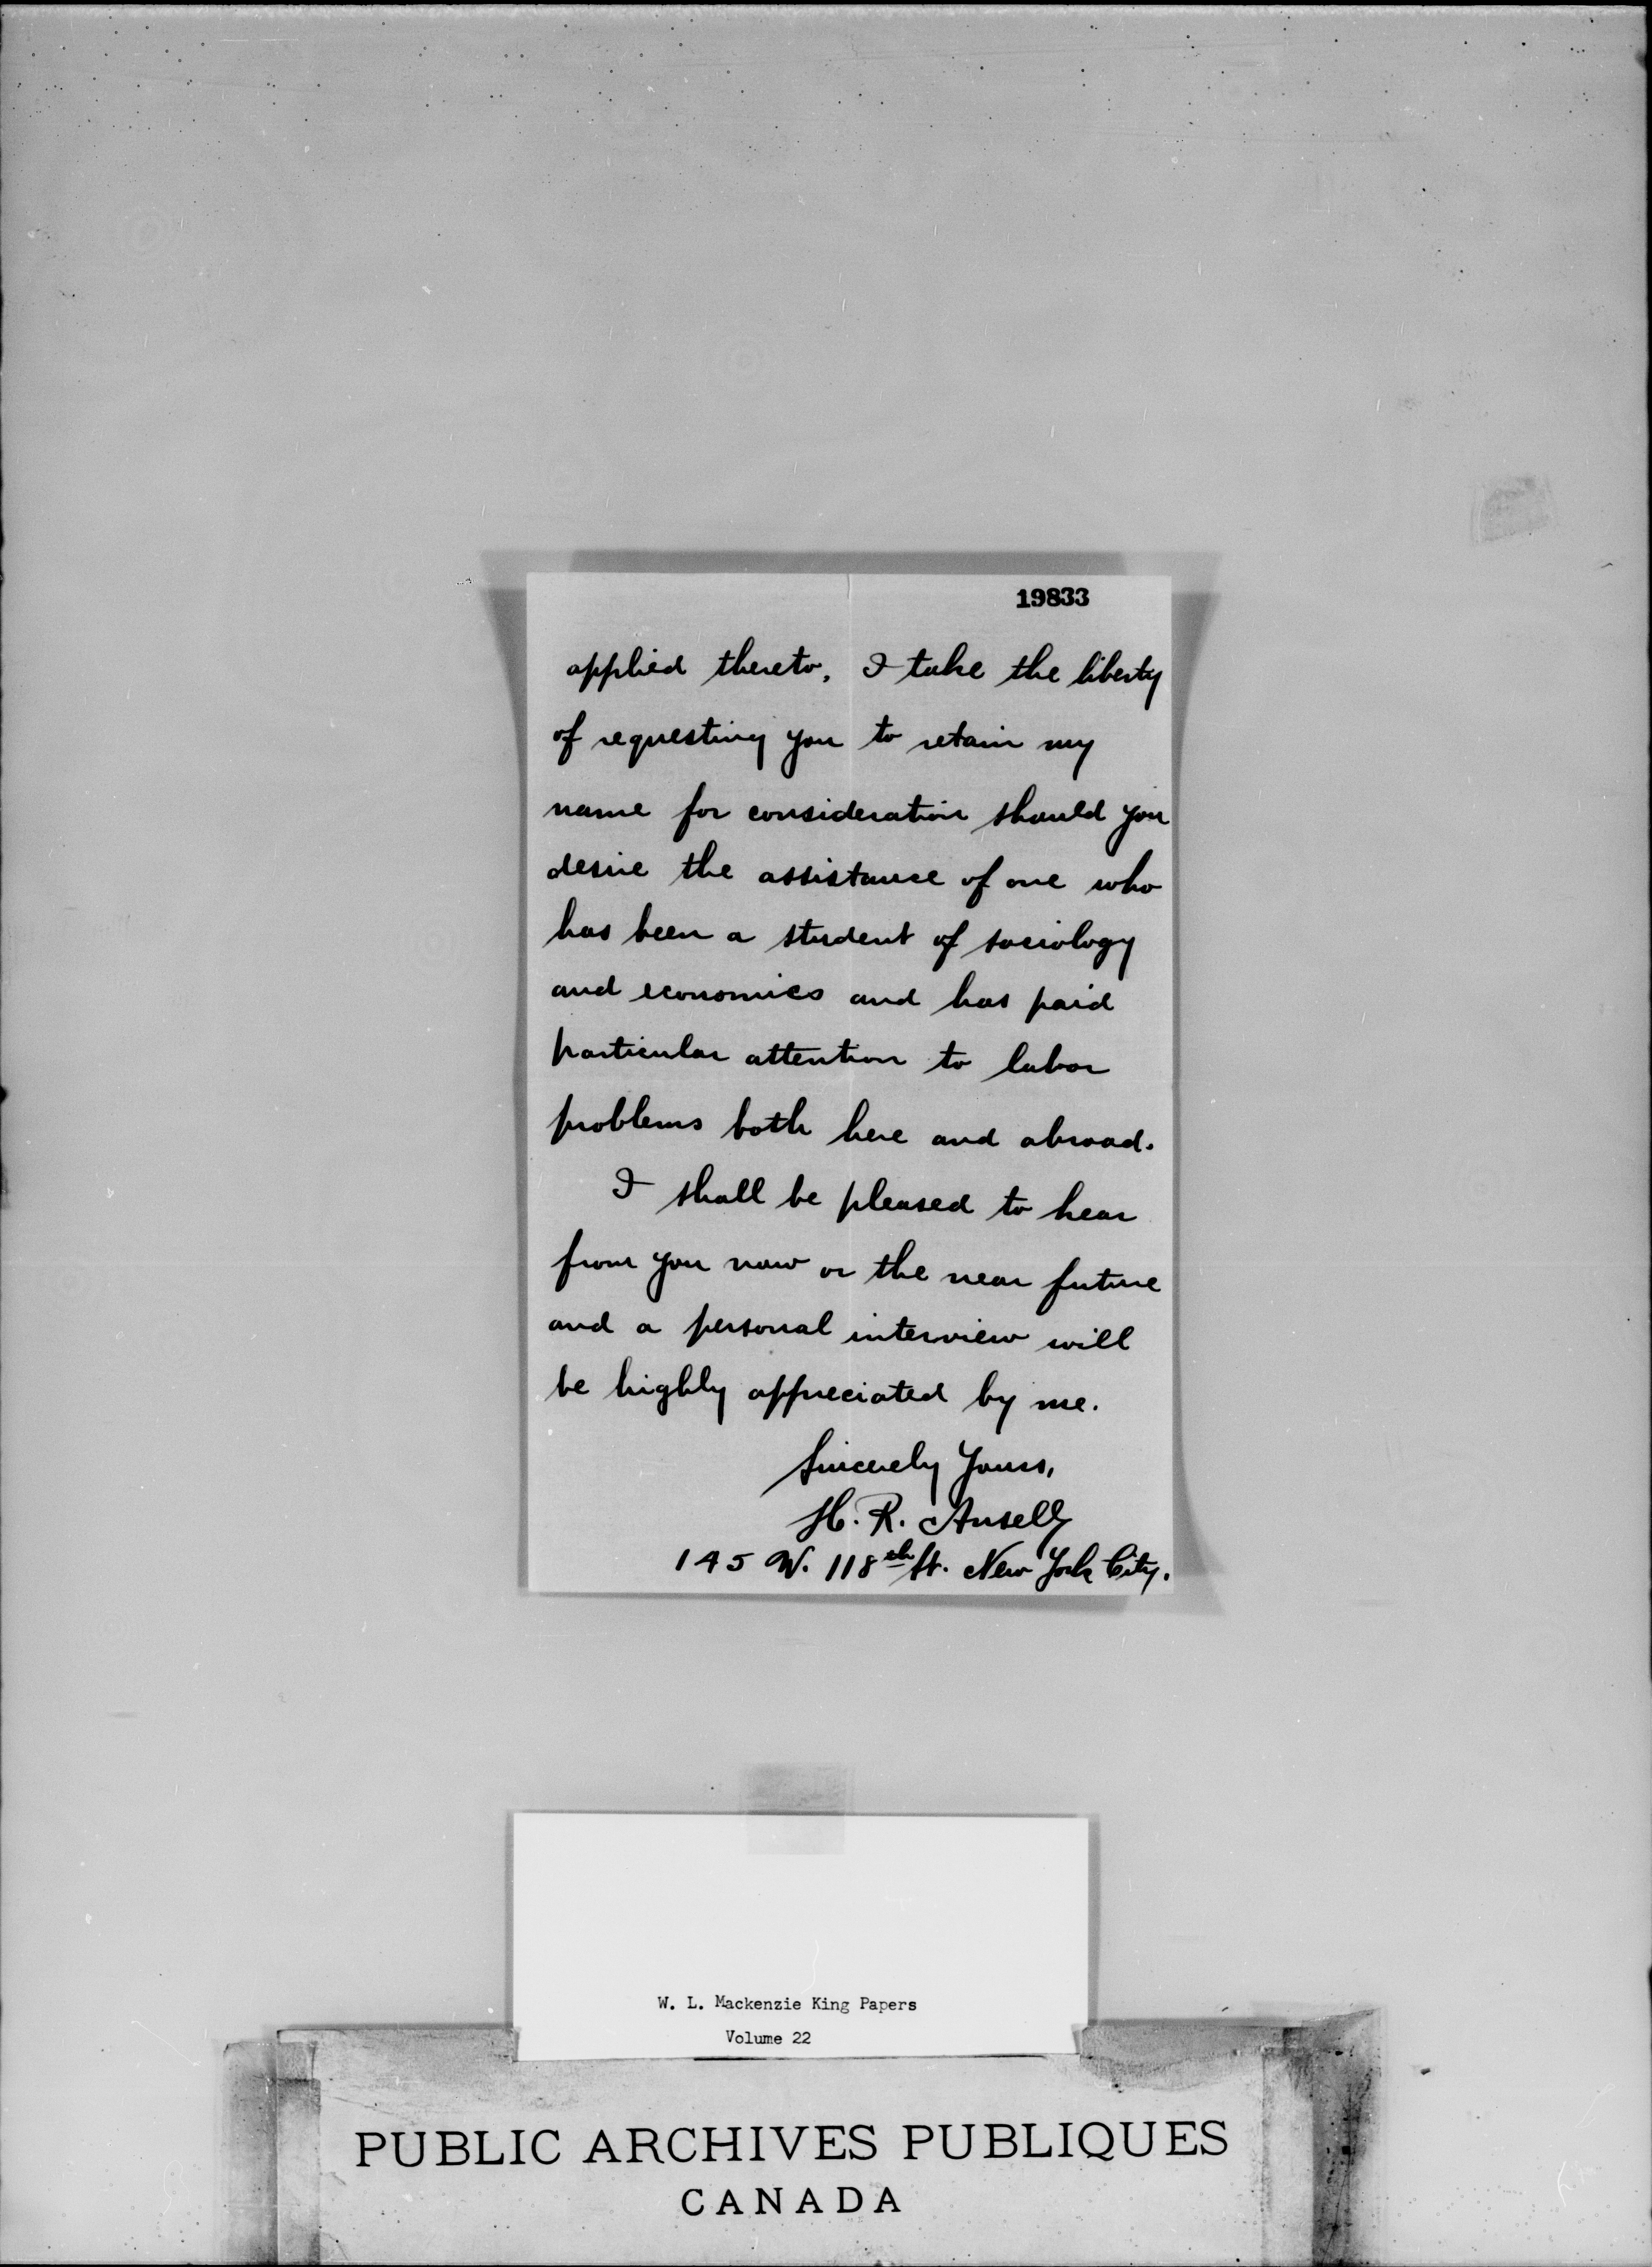 19833
applied thereto, I take the liberty
of requesting you to retain my
name for consideration should you
desire the assistance of one who
has been a student of sociology
and economics and has paid
particular attention to labor
problems both here and abroad.
I shall be pleased to hear
from you now or the near future
and a personal interview will
be highly appreciated by me.
Sincerely Yours,
H. R. Ansell
145 W. 118th St. New York City.
W. L. Mackenzie King Papers
Volume 22
PUBLIC ARCHIVES PUBLIQUES
CANADA